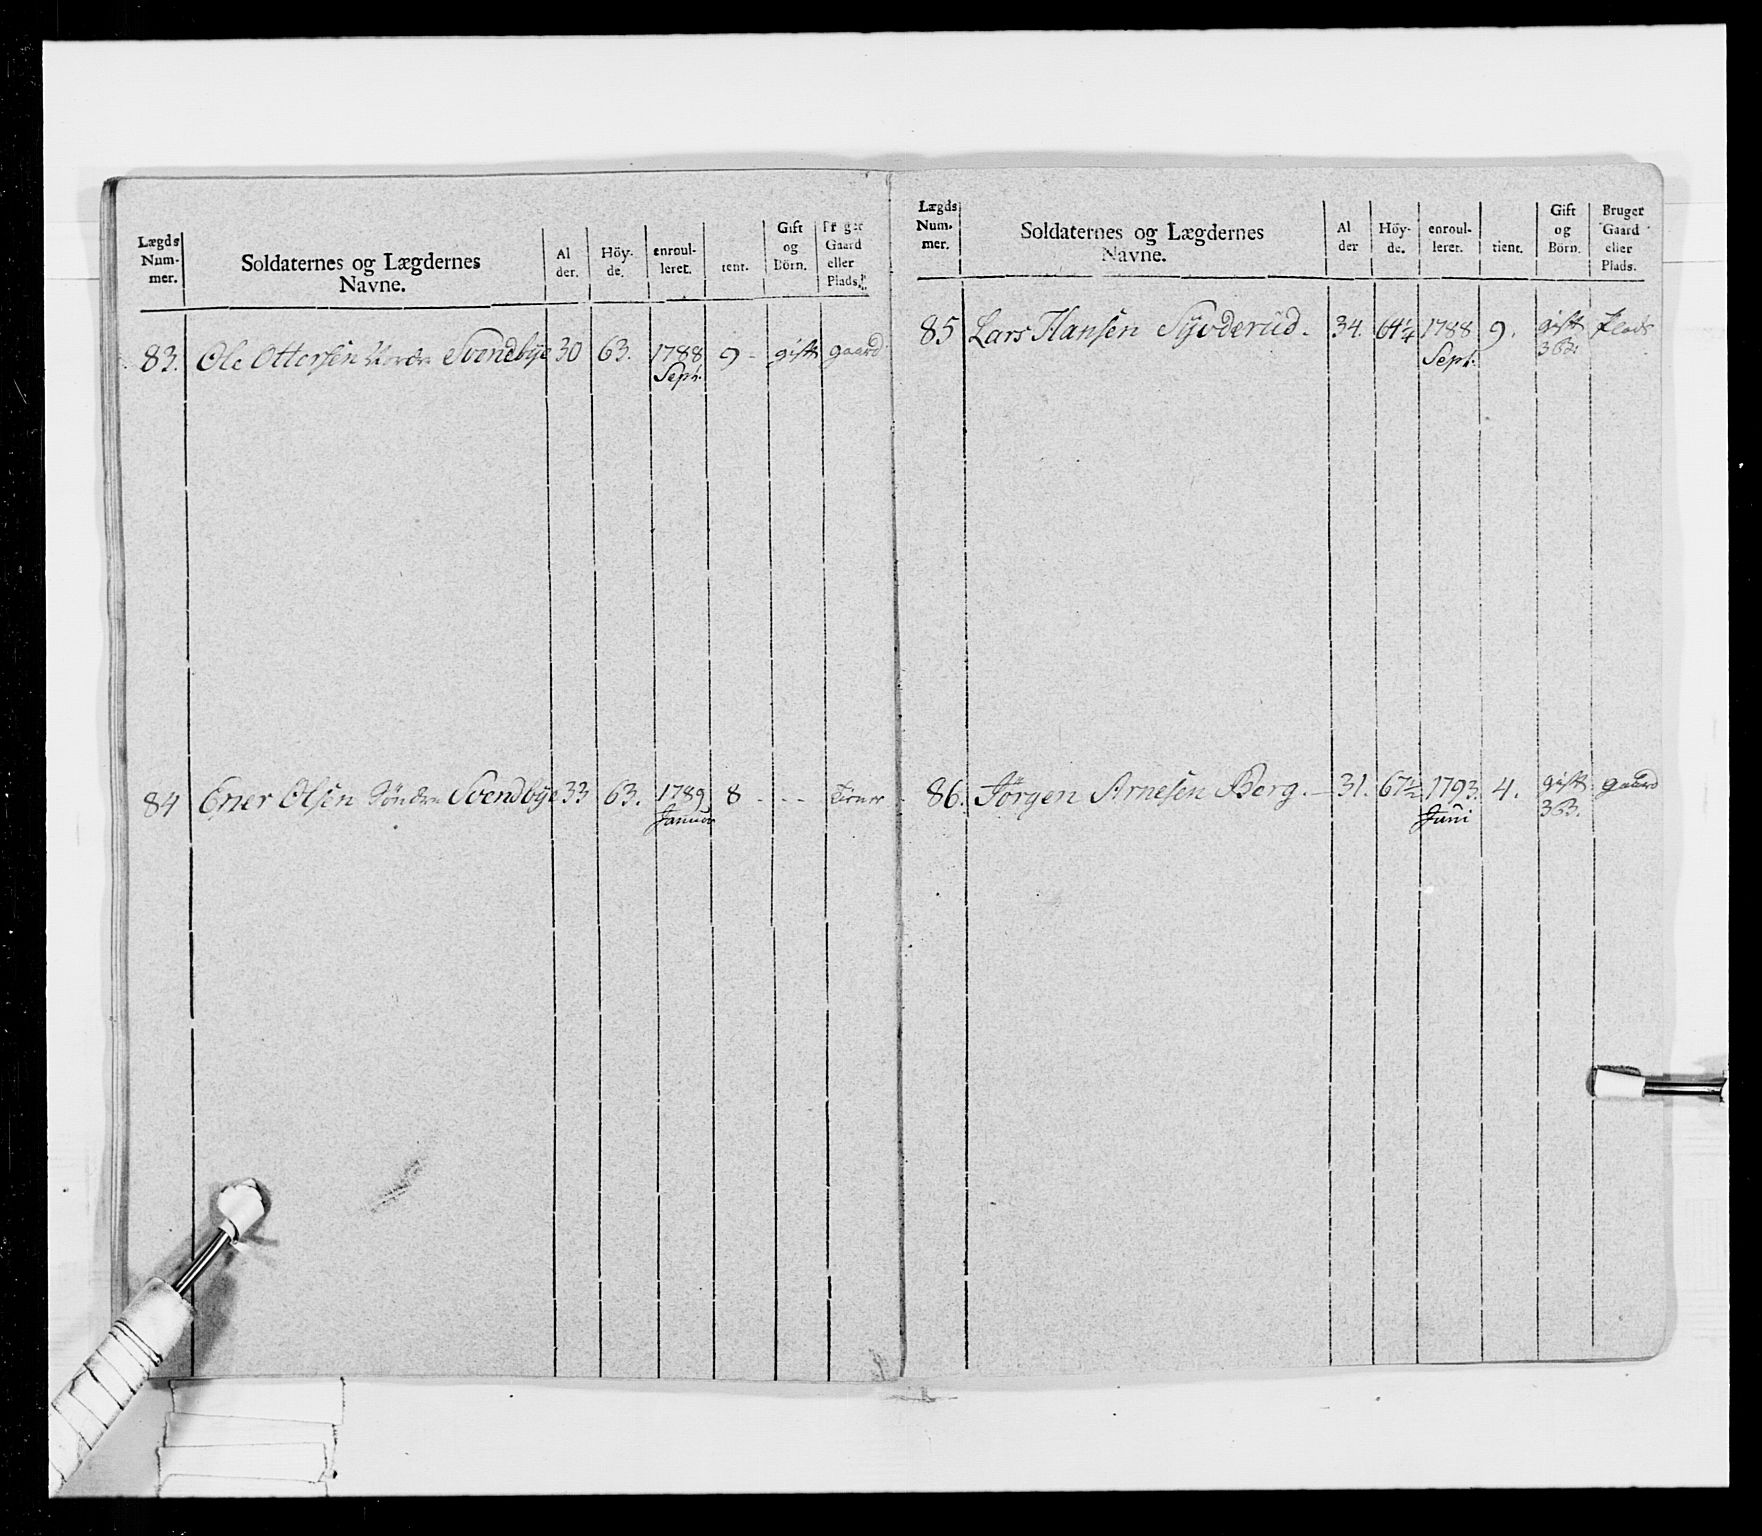 Lægds Num- mer. Soldaternes og Lægdernes Navne. Al der. Höy- de. enroul- leret. tient. Gift og Börn. Bruger Gaard eller Plads.
83. Ole Ottersen Nordre Svendbye 30 63. 1788 Sept. 9 - gift gaard
84 Ener Olsen Söndre Svendbye 33 63. 1789 Januar 8 - - - tiener
Lægds Num- mer. Soldaternes og Lægdernes Navne. Al der Höy- de. enroul- leret. tient. Gift og Börn. Bruger Gaard eller Plads.
85 Lars Hansen Syverud. 34. 64¼ 1788 Sept. 9. gift 3 B. Plads
86. Jörgen Arnesen Berg. - 31. 67½ 1793. Juni 4. gift 3 B. gaard